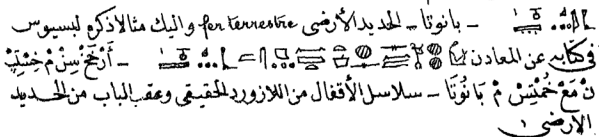 ـ بانوتا ـ الحديد الأرضى fer terrestre واليك مثالا ذكره لبسيوس
فى كتابه عن المعادن ـ
ن مَع م بَانُوتَا ـ سلاسل الأقفال من اللازورد الحقيقى وعقب الباب من الحديد
الارضى ١